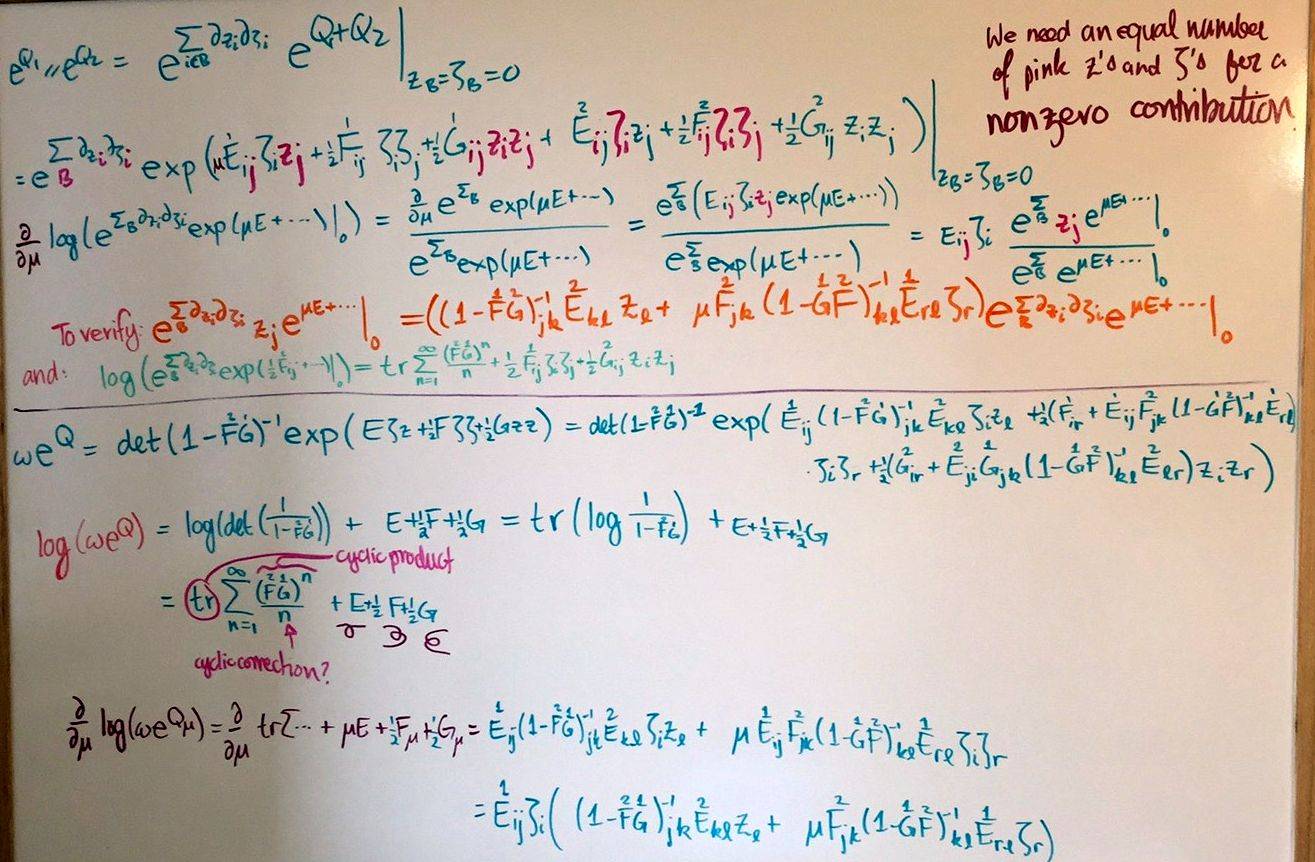 e^{Q₁} // e^{Q₂} = e^{Σ_{i∈B} ∂z_i ∂ζ_i} e^{Q₁+Q₂} |_{z_B=ζ_B=0}
We need an equal number
of pink z's and ζ's for a
nonzero contribution.
= e^{Σ_B ∂z_i ∂ζ_i} exp(μE¹_{ij} ζ_i z_j + ½F¹_{ij} ζ_i ζ_j + ½G¹_{ij} z_i z_j + E²_{ij} ζ_i z_j + ½F²_{ij} ζ_i ζ_j + ½G²_{ij} z_i z_j) |_{z_B=ζ_B=0}
∂/∂μ log(e^{Σ_B ∂z_i ∂ζ_i} exp(μE+⋯)|₀) = (∂/∂μ e^{Σ_B} exp(μE+⋯)) / (e^{Σ_B} exp(μE+⋯)) = (e^{Σ_B}(E_{ij} ζ_i z_j exp(μE+⋯))) / (e^{Σ_B} exp(μE+⋯)) = E_{ij} ζ_i (e^{Σ_B} z_j e^{μE+⋯}|₀) / (e^{Σ_B} e^{μE+⋯}|₀)
To verify: e^{Σ_B ∂z_i ∂ζ_i} z_j e^{μE+⋯}|₀ = ((1-F²G¹)⁻¹_{jk} E²_{kl} z_l + μF²_{jk} (1-G¹F²)⁻¹_{kl} E¹_{rl} ζ_r) e^{Σ_B ∂z_i ∂ζ_i} e^{μE+⋯}|₀
and: log(e^{Σ_B ∂z_i ∂ζ_i} exp(½F¹_{ij}+⋯)|₀) = tr Σ_{n=1}^∞ (F²G¹)ⁿ/n + ½F¹_{ij} ζ_i ζ_j + ½G²_{ij} z_i z_j
ωe^Q = det(1-F²G¹)⁻¹ exp(Eζz + ½Fζζ + ½Gzz) = det(1-F²G¹)⁻¹ exp(E¹_{ij} (1-F²G¹)⁻¹_{jk} E²_{kl} ζ_i z_l + ½(F¹_{ir} + E¹_{ij} F²_{jk} (1-G¹F²)⁻¹_{kl} E¹_{rl})
· ζ_i ζ_r + ½(G²_{ir} + E²_{ji} G¹_{jk} (1-G¹F²)⁻¹_{kl} E²_{lr}) z_i z_r)
log(ωe^Q) = log(det(1/(1-F²G¹))) + E+½F+½G = tr(log 1/(1-F²G¹)) + E+½F+½G
cyclic product
= tr Σ_{n=1}^∞ (F²G¹)ⁿ/n + E+½F+½G
cyclic correction?
∂/∂μ log(ωe^{Qμ}) = ∂/∂μ trΣ⋯ + μE + ½F_μ + ½G_μ = E¹_{ij} (1-F²G¹)⁻¹_{jk} E²_{kl} ζ_i z_l + μE¹_{ij} F²_{jk} (1-G¹F²)⁻¹_{kl} E¹_{rl} ζ_i ζ_r
= E¹_{ij} ζ_i ((1-F²G¹)⁻¹_{jk} E²_{kl} z_l + μF²_{jk} (1-G¹F²)⁻¹_{kl} E¹_{rl} ζ_r)